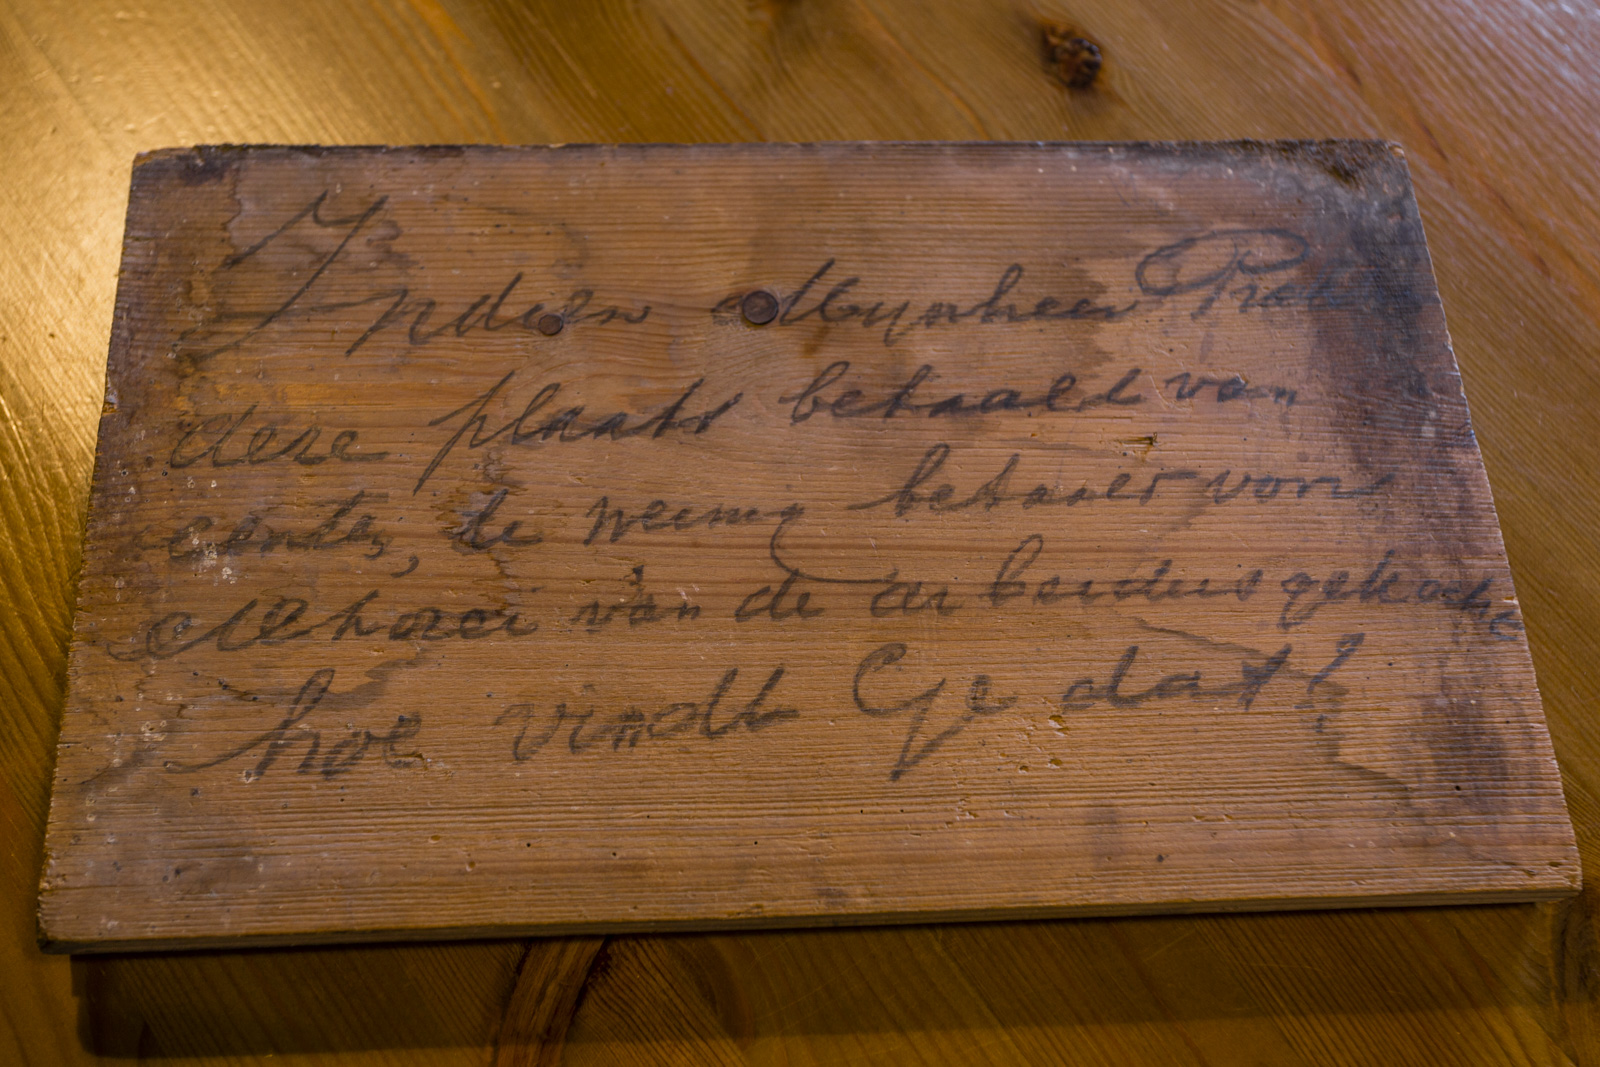 Indien Mynheer
deze plaats betaald van
cente, te weinig betaald voor
van de arbeiders gekochte
hoe vindt Ge dat?